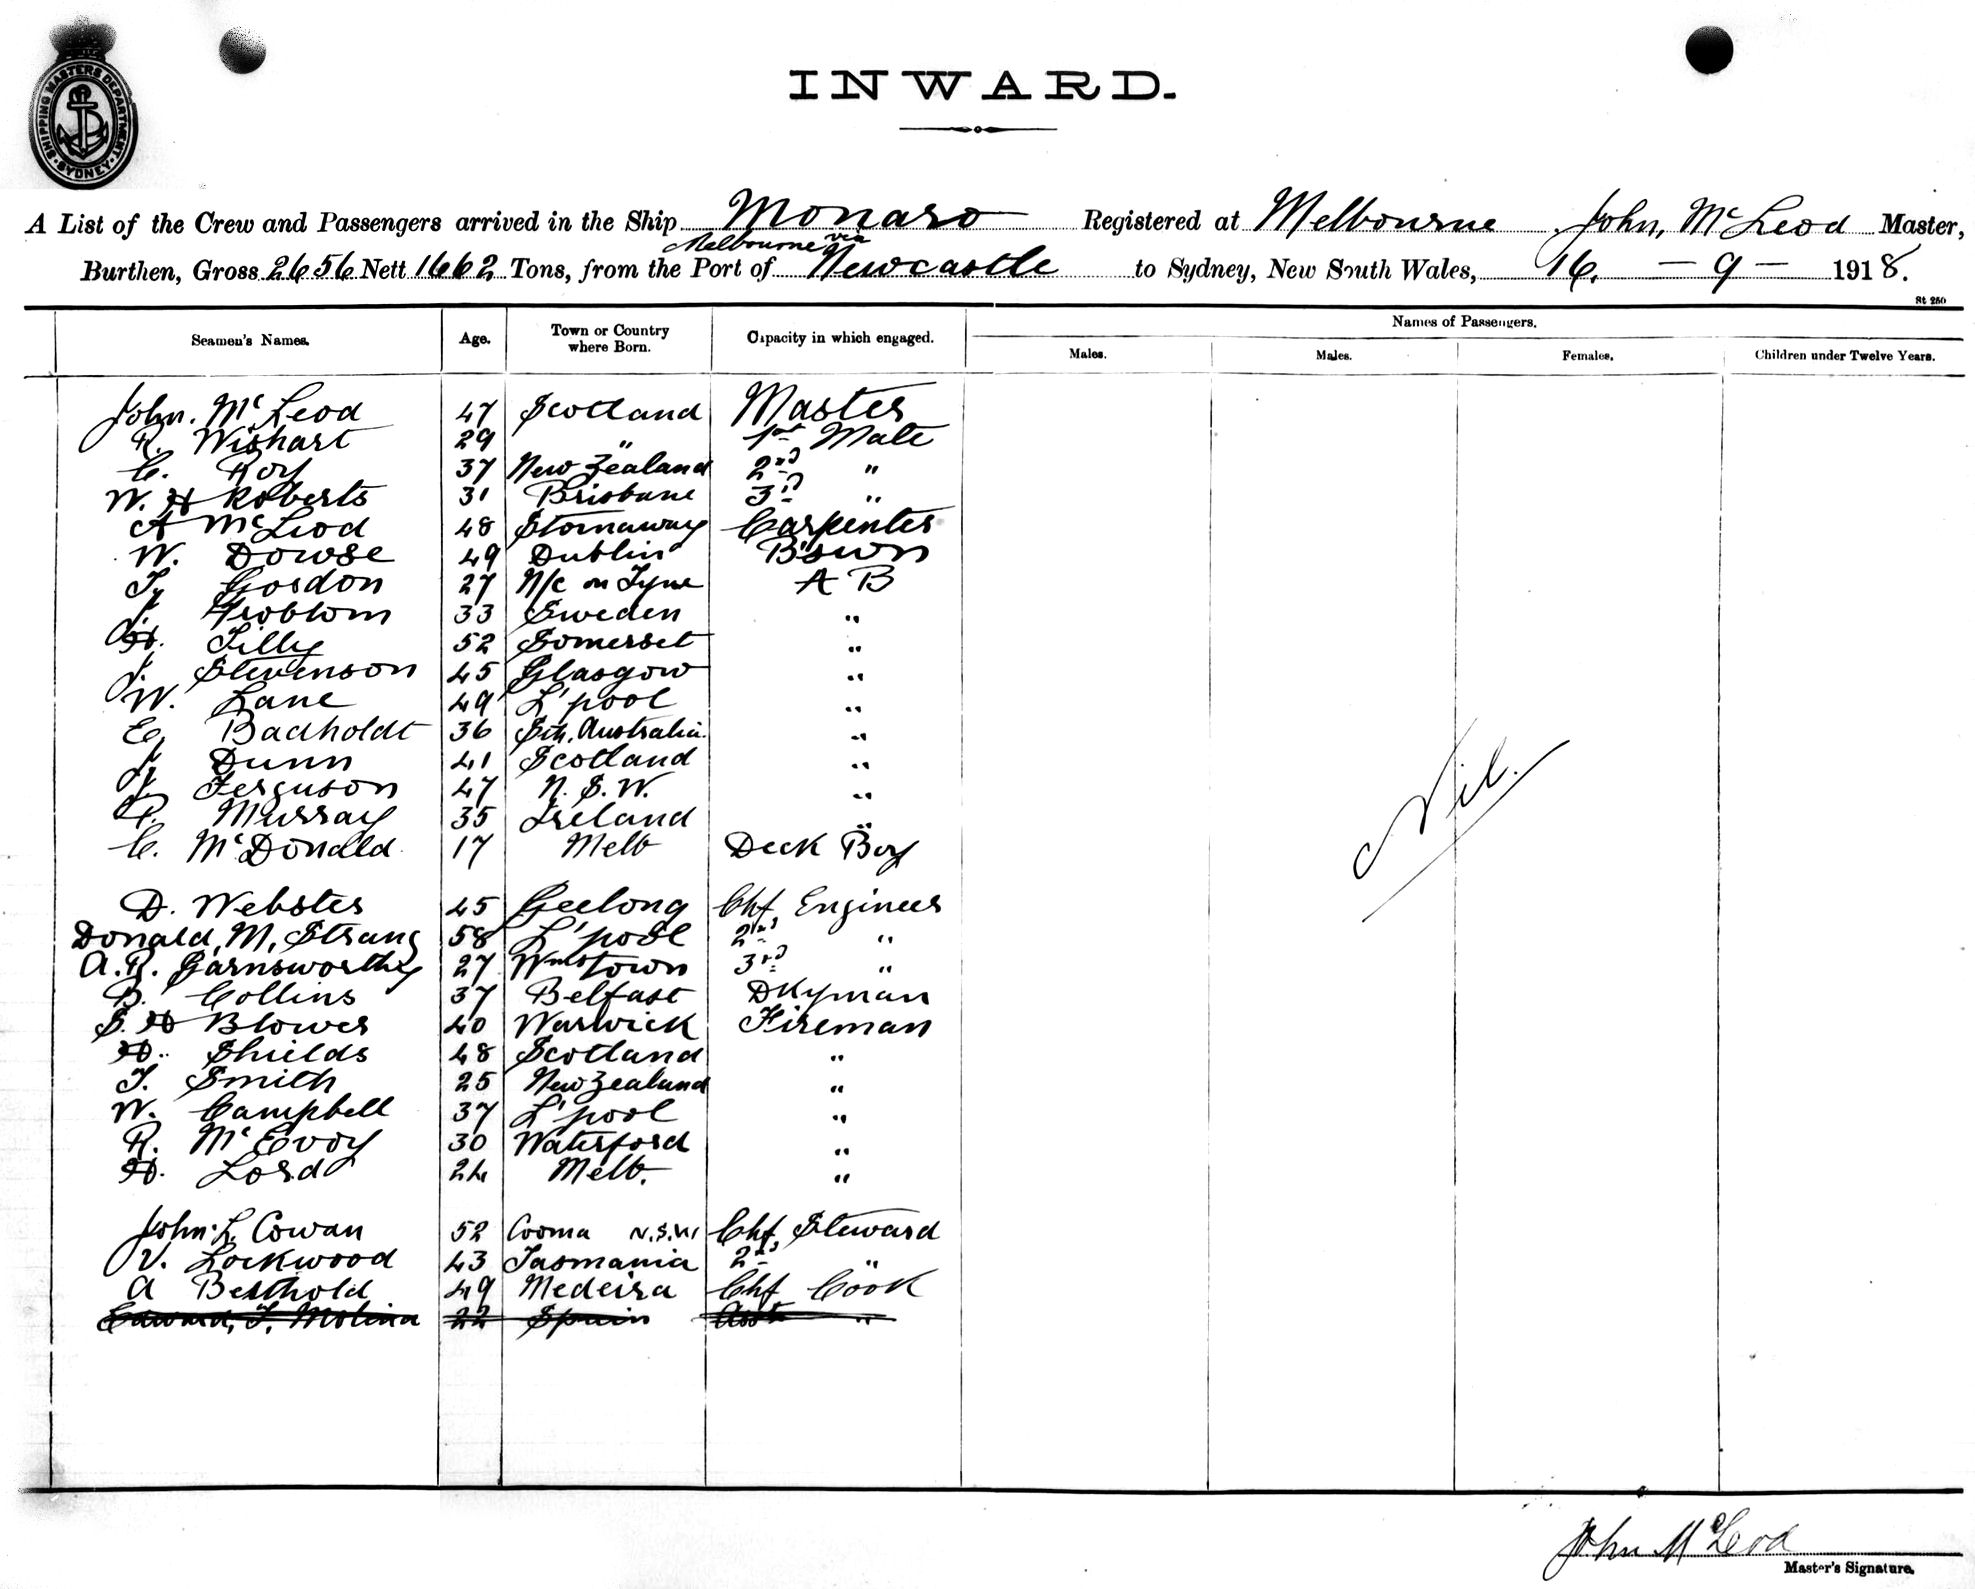 SHIPPING MASTERS DEPARTMENT SYDNEY
INWARD.
A List of the Crew and Passengers arrived in the Ship Monaro Registered at Melbourne John, McLeod Master,
Melbourne via
Burthen, Gross 2656 Nett 1662 Tons, from the Port of Newcastle to Sydney, New South Wales, 16. - 9 - 1918.
St 250
Seamen's Names. Age. Town or Country where Born. Capacity in which engaged. Names of Passengers.
Males. Males. Females. Children under Twelve Years.
John. McLeod 47 Scotland Master
R. Wishart 29 " 1st Mate
C. Roy 37 New Zealand 2nd "
W. H Roberts 31 Brisbane 3rd "
A McLeod 48 Stornaway Carpenter
W. Dowse 49 Dublin B'swn
Ty Gordon 27 N/c on Tyne A B
J. Froblom 33 Sweden "
H. Tilly 52 Somerset "
J. Stevenson 45 Glasgow "
W. Lane 49 L'pool "
E. Badholdt 36 Sth. Australia. "
J. Dunn 41 Scotland "
J. Ferguson 47 N. S. W. "
P. Murray 35 Ireland "
C. McDonald 17 Melb Deck Boy
Nil.
D. Webster 45 Geelong Chf, Engineer
Donald, M, Strang 58 L'pool 2nd "
A. R. Garnsworthy 27 Wmstown 3rd "
B. Collins 37 Belfast Dkyman
S. H Blower 40 Warwick Fireman
H. Shields 48 Scotland "
T. Smith 25 New Zealand "
W. Campbell 37 L'pool "
R. McEvoy 30 Waterford "
H. Lord 24 Melb. "
John. L. Cowan 52 Cooma N.S.W Chf, Steward
V. Lockwood 43 Tasmania 2nd "
A Berthold 49 Medeira Chf Cook
Edward, T, Molina 22 Spain Asst "
John McLeod
Master's Signature.